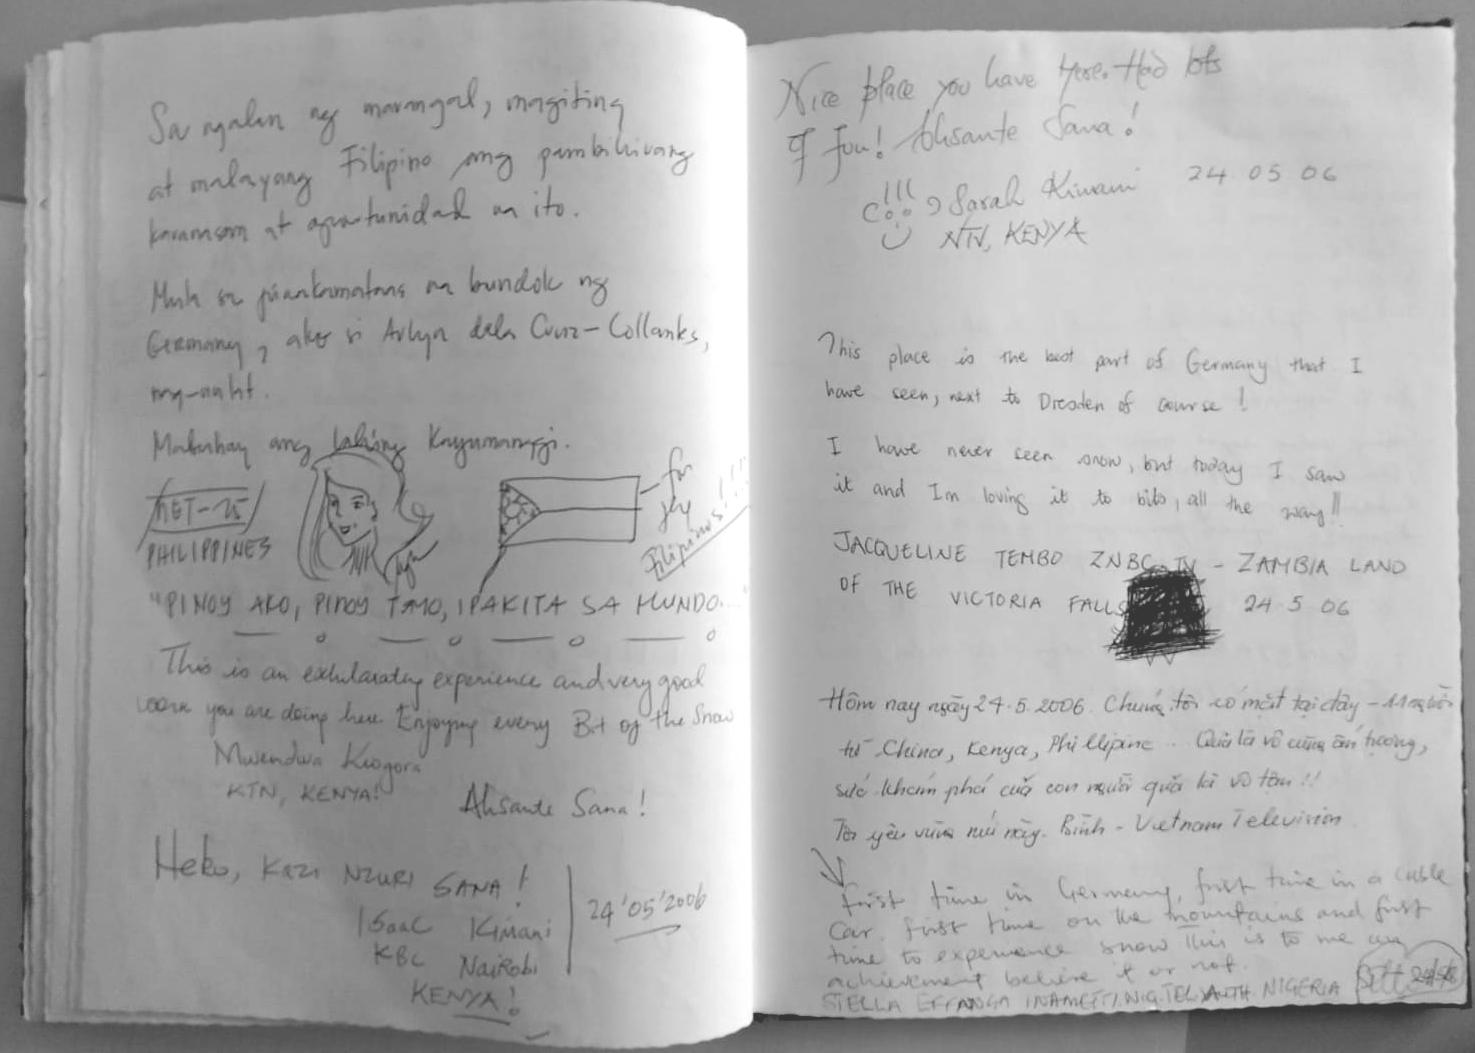 Sa ngalan ng marangal, magiting
at malayang Filipino ang pambihirang
karanasan at oportunidad na ito.
Mula sa pinakamataas na bundok ng
Germany, ako si Arlyn dela Cruz-Collanks,
nag-uulat.
Mabuhay ang lahing Kayumanggi.
NET-25
PHILIPPINES
for
Filipinos!!!!
"PINOY AKO, PINOY TAYO, IPAKITA SA MUNDO..."
This is an exhilarating experience and very good
work you are doing here. Enjoying every Bit of the Snow
Mwendwa Kiogora
KTN, KENYA!
Ahsante Sana!
Heko, KAZI NZURI SANA!
ISaac Kimani
KBC NaiRobi
KENYA!
24'05'2006
Nice place you have Here. Had lots
of fun! Ahsante Sana!
Sarah Kimani 24 05 06
NTV, KENYA
This place is the best part of Germany that I
have seen, next to Dresden of course!
I have never seen snow, but today I saw
it and Im loving it to bits, all the way!!
JACQUELINE TEMBO ZNBC TV - ZAMBIA LAND
OF THE VICTORIA FALLS 24 5 06
Hôm nay ngày 24.5.2006. Chúng tôi có mặt tại đây - 11 người
từ China, Kenya, Phillipine... Quả là vô cùng ấn tượng,
sức khám phá của con người quả là vô tận!!
Tôi yêu vùng núi này. Bình - Vietnam Television
first time in Germany, first time in a cable
car. first time on the mountains and first
time to experience snow This is to me an
achievement believe it or not.
STELLA EFFANGA INAMETTI, NIG. TEL. AUTH. NIGERIA